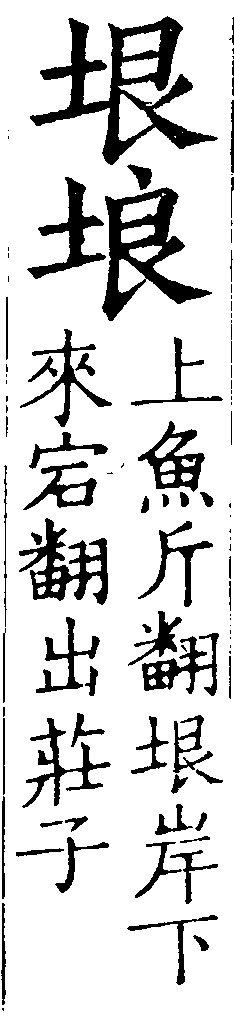 垠埌
上魚斤翻垠岸下
來宕翻出莊子